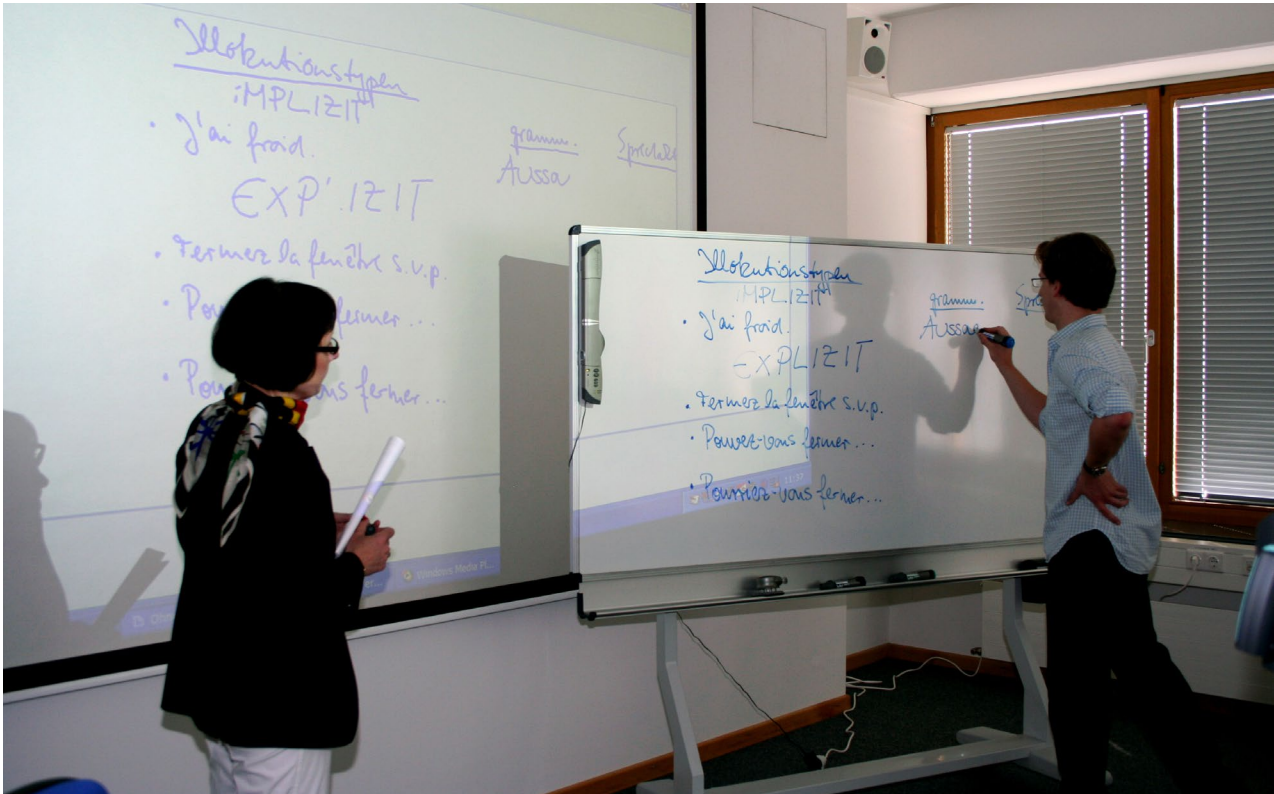 Illokutionstypen
iMPLIZIT
• J'ai froid.
gramm.
Aussa
EXP'.IZIT
• Fermez la fenêtre s.v.p.
• fermer...
• fermer...
Windows Media Pl...
Illokutionstypen
iMPLIZIT
• J'ai froid.
gramm.
Aussa
EXPLIZIT
• Fermez la fenêtre s.v.p.
• Pouvez-vous fermer...
• Pourriez-vous fermer...
11:37